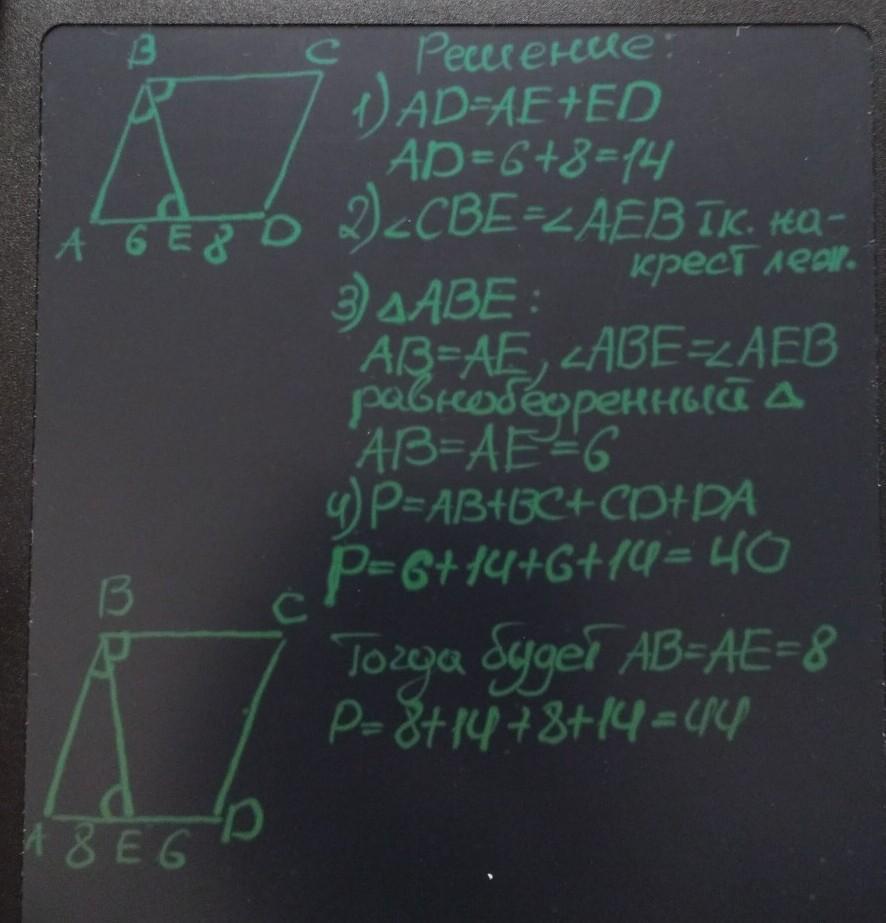 B C
A 6 E 8 D
Решение:
1) AD=AE+ED
AD=6+8=14
2) ∠CBE=∠AEB т.к. на-
крест леж.
3) △ABE:
AB=AE, ∠ABE=∠AEB
равнобедренный △
AB=AE=6
4) P=AB+BC+CD+DA
P=6+14+6+14=40
B C
A 8 E 6 D
Тогда будет AB=AE=8
P=8+14+8+14=44